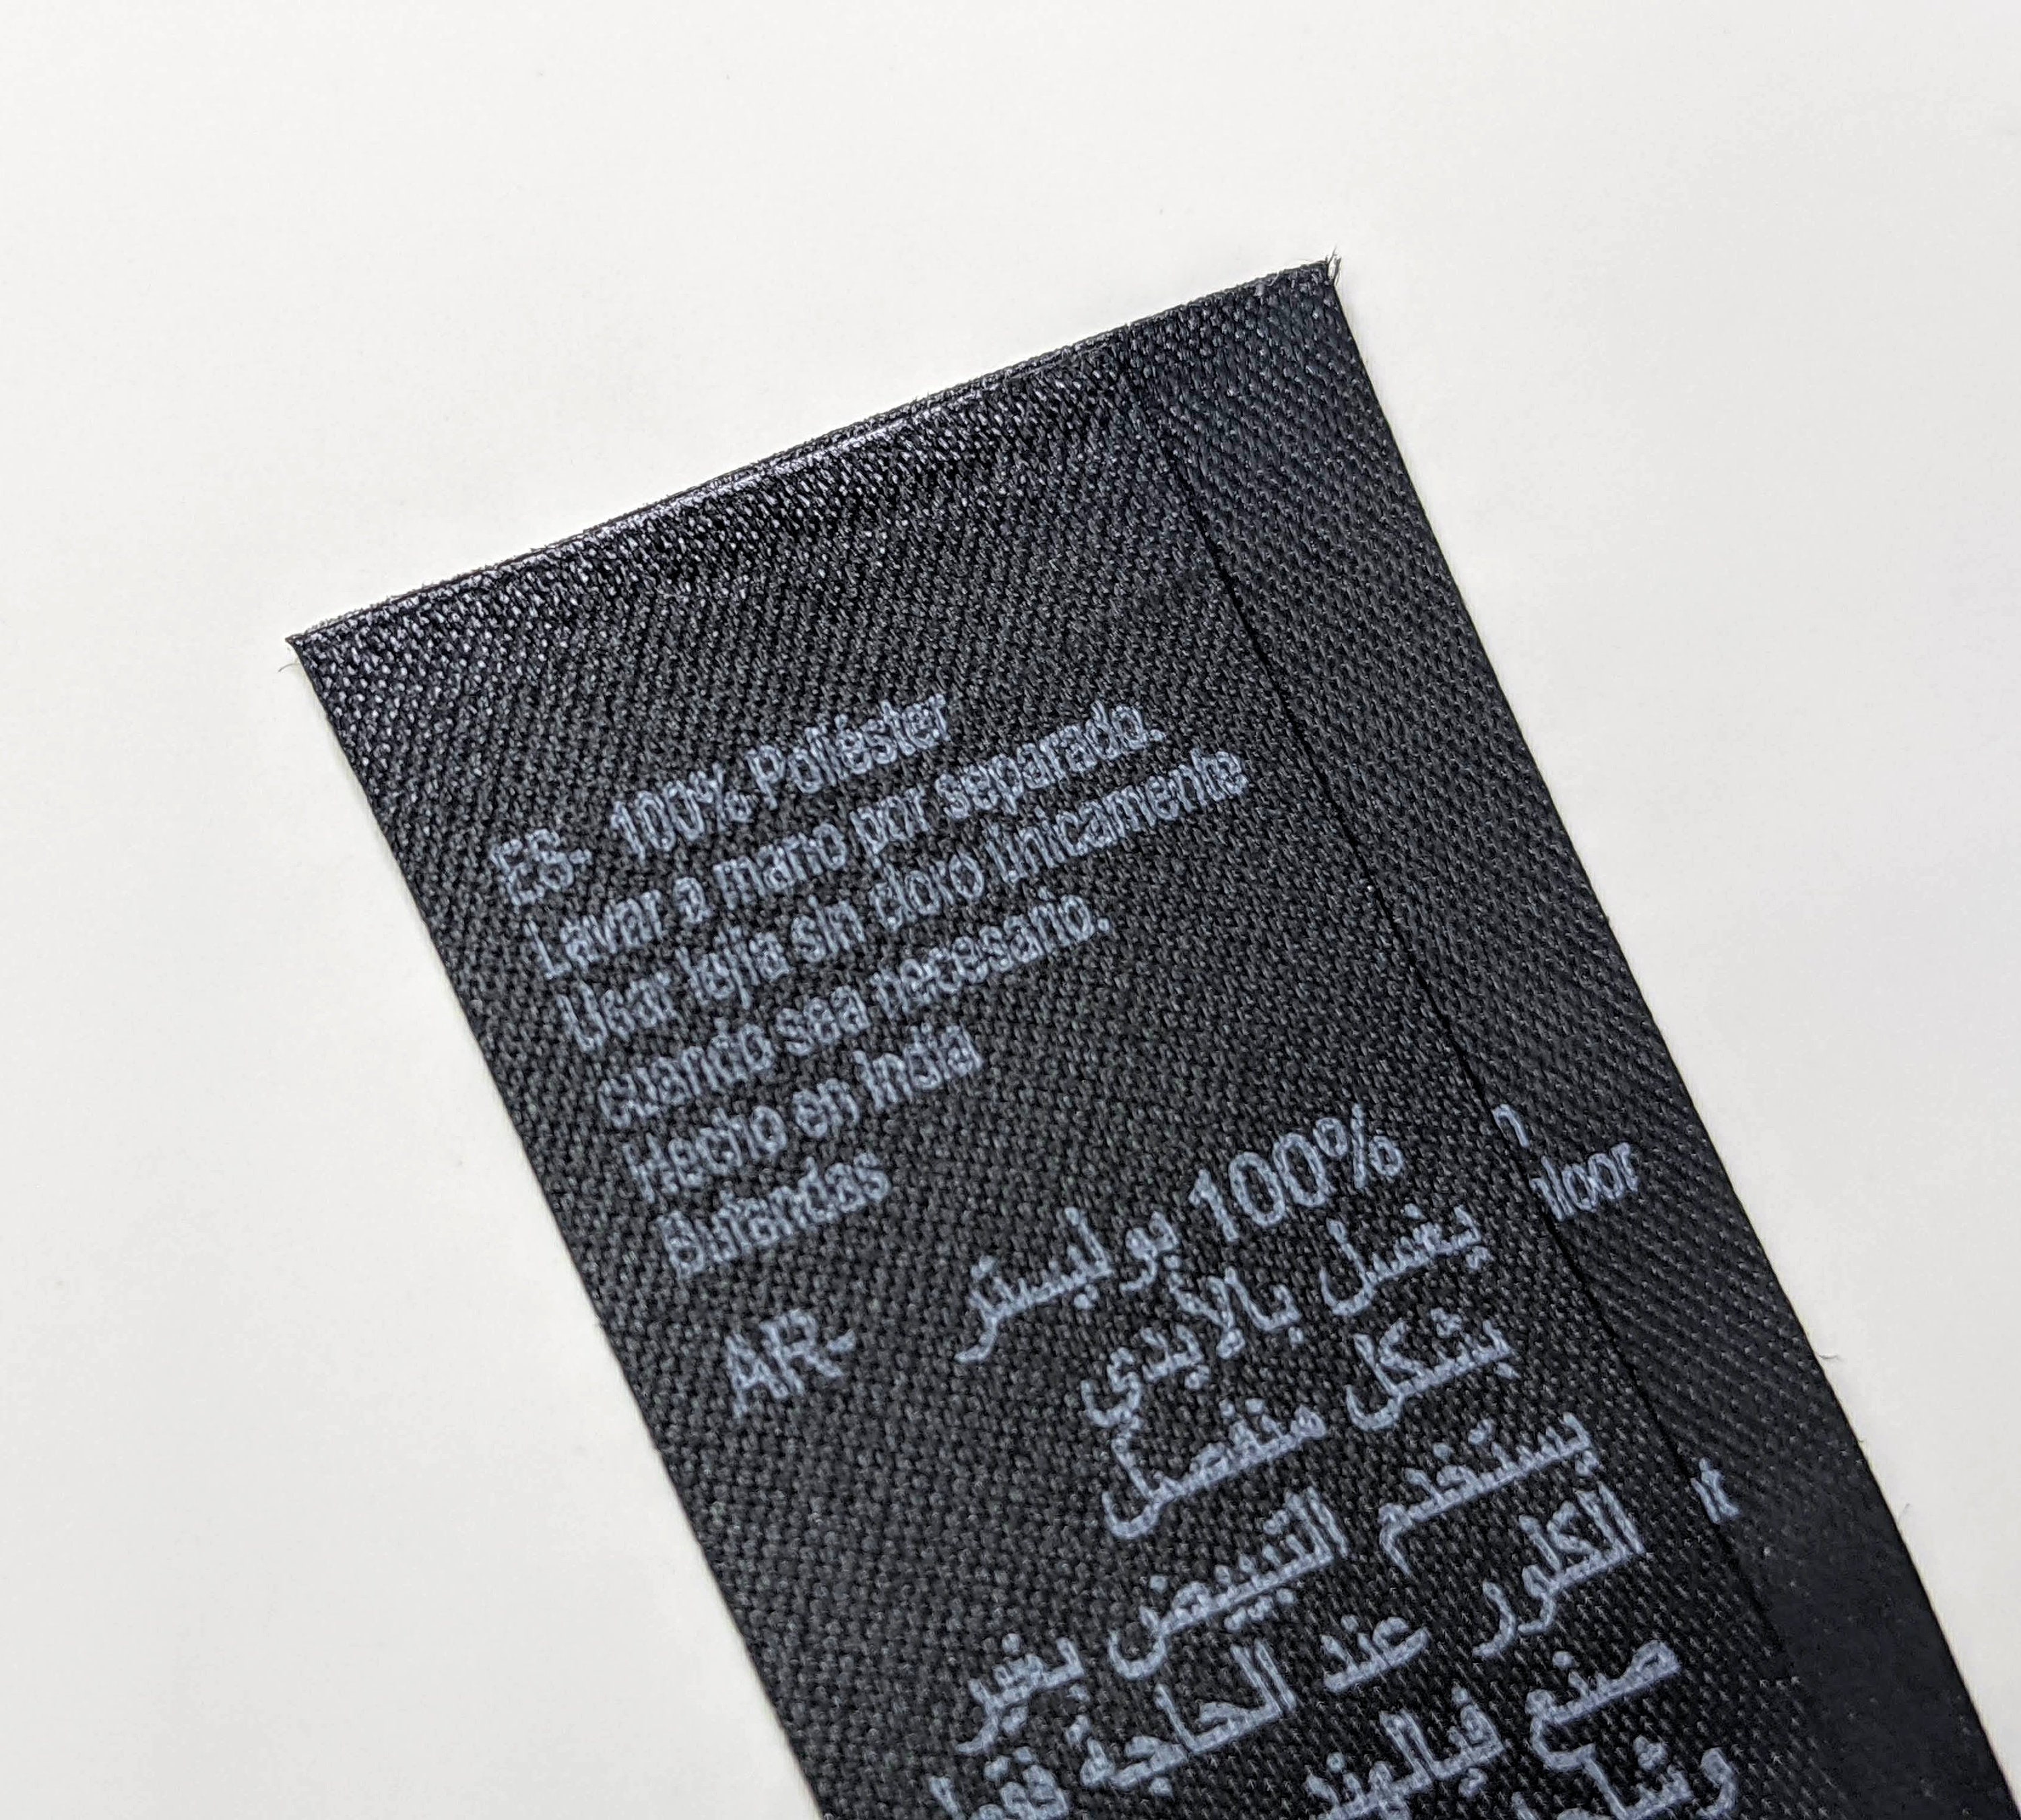 ES- 100% Poliéster
Lavar a mano por separado.
Usar lejía sin cloro únicamente
cuando sea necesario.
Hecho en India
Bufandas
AR- 100% بوليستر
يغسل بالأيدي
بشكل منفصل
يستخدم التبييض بغير
الكلور عند الحاجة فقط
صنع فيالهند